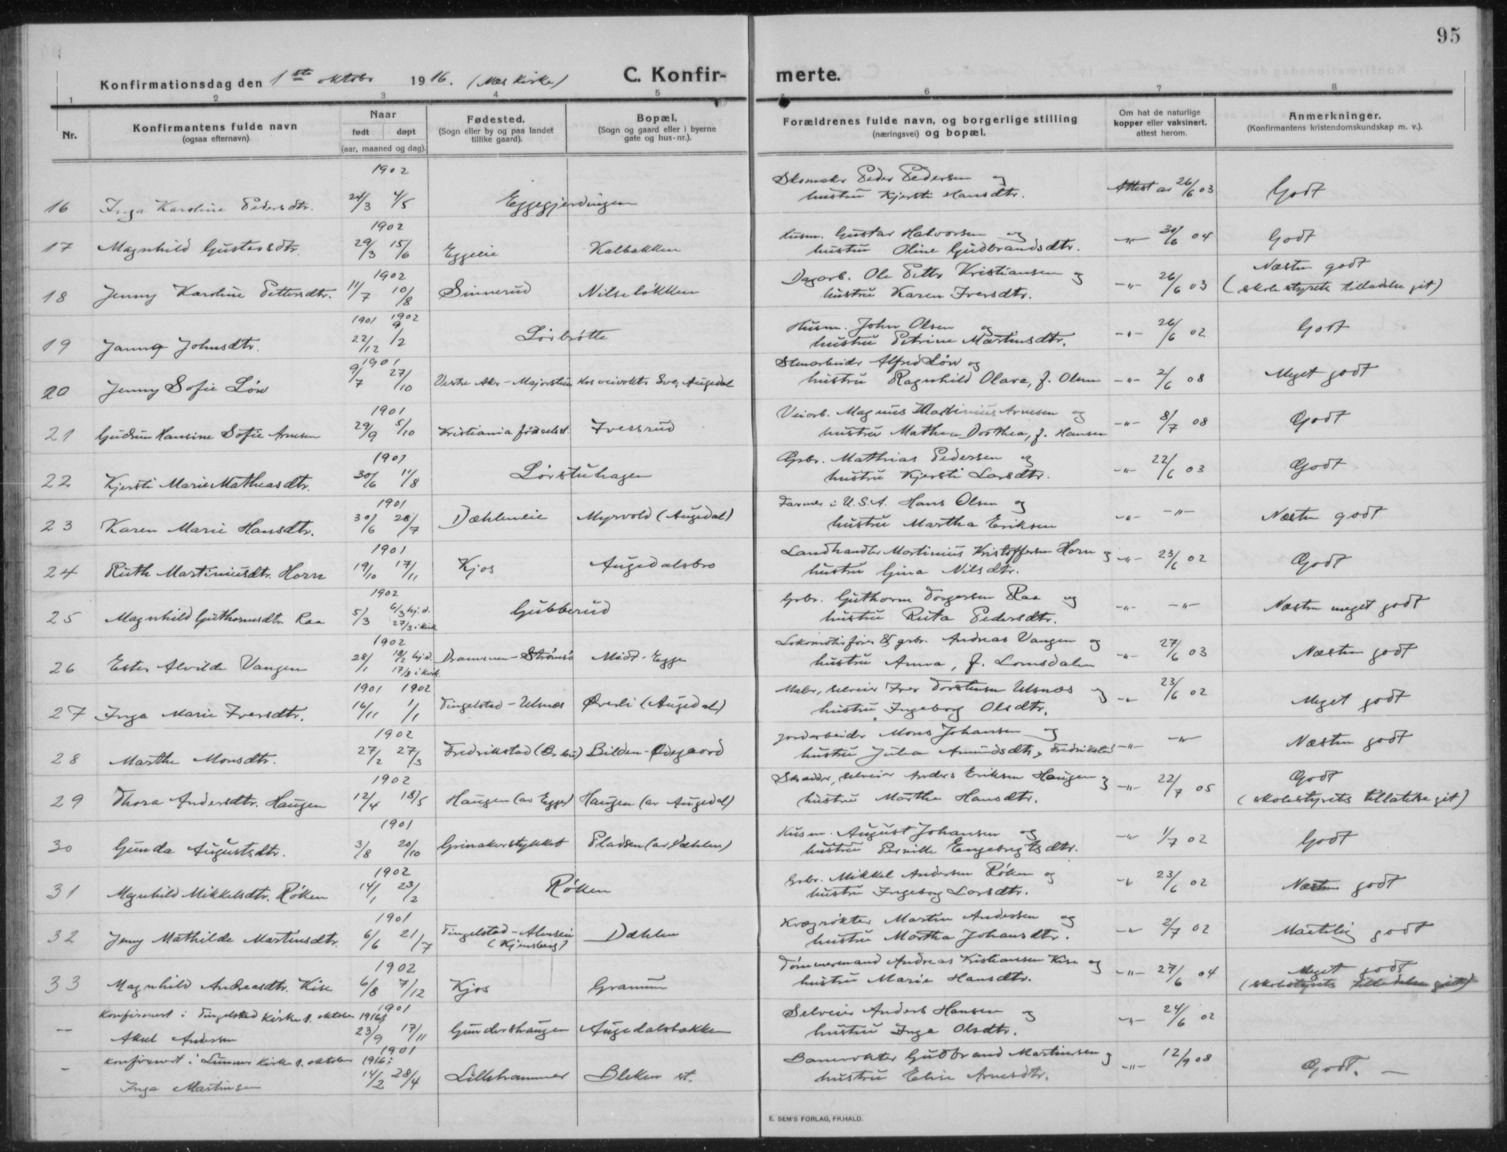 95
Konfirmationsdag den 1ste oktobr 1916. (Næs kirke) C. Konfirmerte.
1 2 3 4 5 6 7 8
Nr. Konfirmantens fulde navn (ogsaa efternavn). Naar født døpt (aar, maaned og dag). Fødested. (Sogn eller by og paa landet tillike gaard). Bopæl. (Sogn og gaard eller i byerne gate og hus-nr.). Forældrenes fulde navn, og borgerlige stilling (næringsvei) og bopæl. Om hat de naturlige kopper eller vaksinert, attest herom. Anmerkninger. (Konfirmantens kristendomskundskap m. v.).
1902
Skomaker Peder Pedersen og
16 Inga Karoline Pedersdtr. 24/3 4/5 Eggegjerdingen hustru Kjersti Hansdtr. Attest av 26/6 03 Godt
1902
Husm. Gustav Halvorsen og
17 Magnhild Gustavsdtr. 29/3 15/6 Eggeeie Kalbakken hustru Oline Gudbrandsdtr. -"- 30/6 04 Godt
1902
Dagarb. Ole Petter Kristiansen og Næsten godt
18 Jenny Karoline Pettersdtr. 11/7 10/8 Sinnerud Nilsløkken hustru Karen Iversdtr. -"- 26/6 03 (skolestyrets tilladelse git)
1901 1902
Husm. John Olsen og
19 Janna Johnsdtr. 22/12 9/2 Lørbråtte hustru Petrine Martinsdtr. -"- 26/6 02 Godt
1901
Stenarbeider Alfred Løv og
20 Jenny Sofie Løv 9/7 27/10 Vestre Aker - Majorstuen hos veivokter Sve, Augedal hustru Ragnhild Olava, f. Olsen -"- 2/6 08 Meget godt
1901
Veiarb. Magnus Martinius Arnesen og
21 Gudrun Hansine Sofie Arnesen 29/9 5/10 Kristiania fødselsst. Iversrud hustru Mathea Dorthea, f. Hansen -"- 8/7 08 Godt
1901
Grbr. Mathias Pedersen og
22 Kjersti Marie Mathiasdtr. 30/6 11/8 Lørstuhagen hustru Kjersti Larsdtr. -"- 22/6 03 Godt
1901
Farmer i U.S.A. Hans Olsen og
23 Karen Marie Hansdtr. 30/6 28/7 Dæhleneie Myrvold (Augedal) hustru Martha Eriksen -"- -"- Næsten godt
1901
Landhandler Martinius Kristoffersen Horn og
24 Ruth Martiniusdtr. Horn 19/10 17/11 Kjos Augedalsbro hustru Gina Nilsdtr. -"- 23/6 02 Godt
1902
Grbr. Guthorm Torgersen Raa og
25 Magnhild Guthormsdtr. Raa 5/3 6/3 hj.d. 27/3 i kirk. Gubberud hustru Ruta Pedersdtr. -"- -"- Næsten meget godt
1902
Lokomotivfører & grbr. Andreas Vangen og
26 Ester Alvilde Vangen 28/1 18/2 hj.d. 17/8 i kirk. Drammen - Strømsø Midt-Egge hustru Anna, f. Lomsdalen -"- 27/6 03 Næsten godt
1901 1902
Maler, selveier Iver Torstensen Ulsnæs og
27 Inga Marie Iversdtr. 16/11 1/1 Tingelstad - Ulsnæs Øverli (Augedal) hustru Ingeborg Olsdtr. -"- 23/6 02 Meget godt
1902
Jordarbeider Mons Johansen og
28 Marthe Monsdtr. 27/2 27/3 Fredrikstad Bilden-Ødegaard hustru Julia Amundsdtr, Fredrikstad -"- -"- Næsten godt
1902
Skrædder, selveier Anders Eriksen Haugen og Godt
29 Thora Andersdtr. Haugen 12/4 18/5 Haugen (av Egge) Haugen (av Augedal) hustru Marthe Hansdtr. -"- 22/7 05 (skolestyrets tillatelse git)
1901
Husm. August Johansen og
30 Gunda Augustsdtr. 3/8 20/10 Grinakerstykket Pladsen (av Dæhlen) hustru Pernille Engebrigtsdtr. -"- 1/7 02 Godt
1902
Grbr. Mikkel Andersen Røken og
31 Magnhild Mikkelsdtr. Røken 14/1 23/2 Røken hustru Ingeborg Larsdtr. -"- 23/6 02 Næsten godt
1901
Kvægrøkter Martin Andersen og
32 Jenny Mathilde Martinsdtr. 6/6 21/7 Tingelstad - Almseie (Kjensberg) Dæhlen hustru Martha Johansdtr. -"- 2/7 02 Maatelig godt
1902
Tømmermand Andreas Kristiansen Kise og Meget godt
33 Magnhild Andreasdtr. Kise 6/8 7/12 Kjos Granum hustru Marie Hansdtr. -"- 27/6 04 (skolestyrets tilladelse git)
Konfirmert i Tingelstad kirke 8. oktober 1916: 1901
Selveier Anders Hansen og
— Aksel Andersen 23/9 17/11 Gundershaugen Augedalsbakken hustru Inga Olsdtr. -"- 24/6 02
Konfirmert i Lunner kirke 8. oktober 1916: 1901
Banevokter Gudbrand Martinsen og
- Inga Martinsen 14/2 28/4 Lillehammer Bleken st. hustru Elise Arnesdtr. -"- 12/9 08 Godt. —
E. SEM'S FORLAG, FR.HALD.